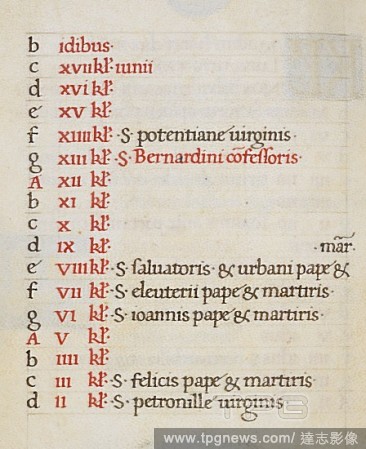 b idibus·
c xvii kl· iunii
d xvi kl·
e xv kl·
f xiiii kl· S· potentiane uirginis·
g xiii kl· S· Bernardini cõfessoris·
A xii kl·
b xi kl·
c x kl·
d ix kl· mar̃·
e viii kl· S· saluatoris· & urbani pape &
f vii kl· S· eleuterii pape & martiris·
g vi kl· S· ioannis pape & martiris·
A v kl·
b iiii kl·
c iii kl· S· felicis pape & martiris
d ii kl· S· petronille uirginis·
www.tpgnews.com/ 達志影像